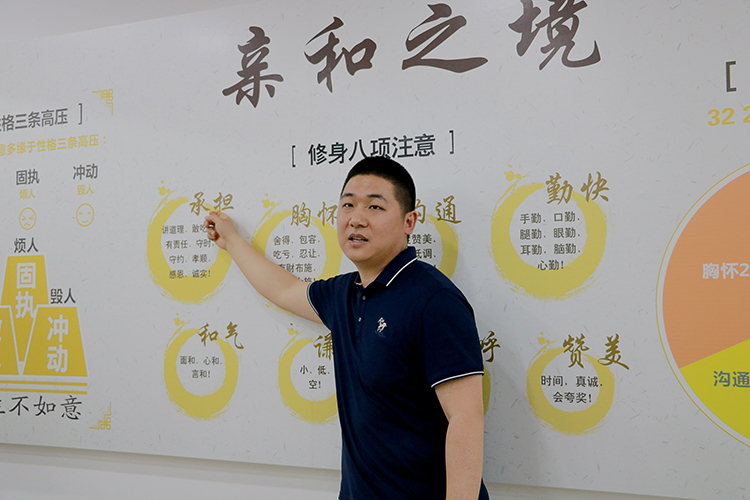 亲和之境
性格三条高压 ]
多缘于性格三条高压：
固执 冲动
烦人 毁人
烦人
固执
毁人
冲动
不如意
[ 修身八项注意 ]
承担
讲道理、敢吃
有责任、守时
守约、孝顺、
感恩、诚实！
胸怀
舍得、包容、
吃亏、忍让、
财布施、
沟通
赞美、
低调、
勤快
手勤、口勤、
腿勤、眼勤、
耳勤、脑勤、
心勤！
和气
面和、心和、
言和！
谦
小、低、
空！
呼
赞美
时间、真诚、
会夸奖！
[
32 2
胸怀2
沟通